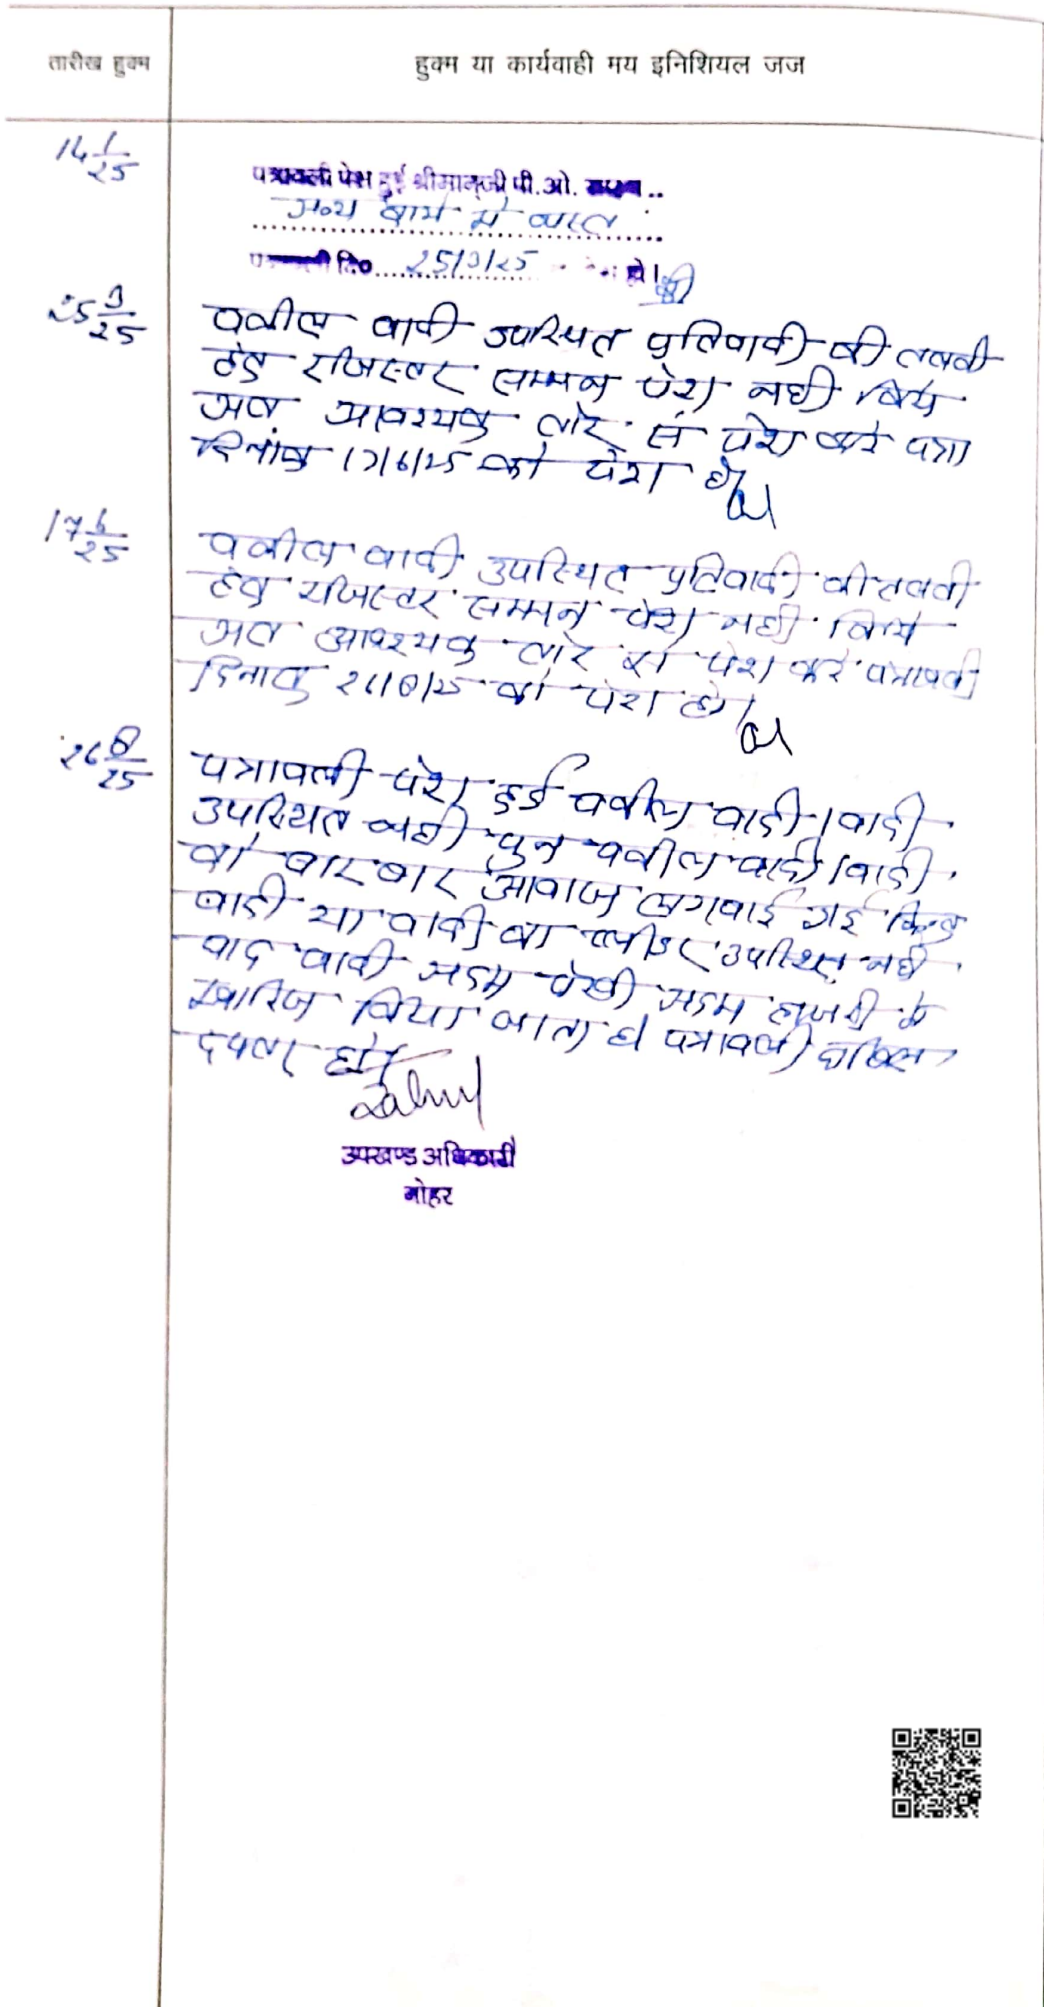 तारीख हुक्म
हुक्म या कार्यवाही मय इनिशियल जज
14 1/25
पत्रावली पेश हुई श्रीमान्‌जी पी.ओ. ..
अन्य कार्य मे व्यस्त
दि० 25/3/25 हो।
25 3/25
वकील वादी उपस्थित प्रतिवादी की तलबी
हेतु रजिस्टर सम्मन पेश नही किये
अत आवश्यक तोर से पेश करे पत्रा
दिनांक 17/6/25 को पेश हो
17 6/25
वकील वादी उपस्थित प्रतिवादी की तलबी
हेतु रजिस्टर सम्मन पेश नही किये
अत आवश्यक तोर से पेश करे पत्रावली
दिनाक 26/8/25 को पेश हो
26 8/25
पत्रावली पेश हुई वकील वादी/वादी
उपस्थित नही पुन वकील वादी/वादी
को बार बार आवाज लगवाई गई किन्तु
वादी या वादी का उपस्थित नही
वाद वादी अदम पेरवी अदम हाजरी मे
खारिज किया जाता है पत्रावली दाखिल
दफ्तर हो
उपखण्ड अधिकारी
नोहर